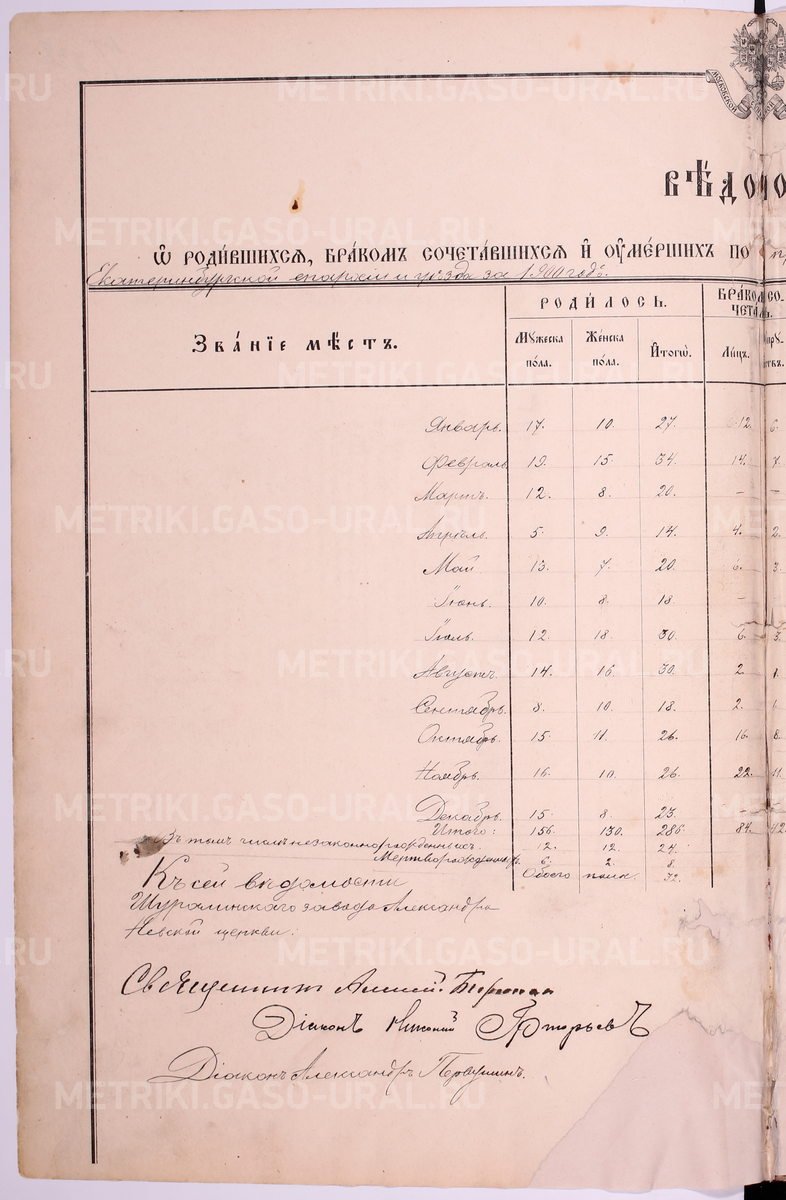 МОСКОВСКОЙ
ВѢДОМО
Ѿ РОДИ́ВШИХСѦ, БРА́КОМЪ СОЧЕТА́ВШИХСѦ И҆ ОУ҆МЕ́РШИХЪ ПО
Екатеринбургской епархіи и уѣзда за 1900 годъ.
Зва́нїе мѣ́стъ.
РОДИ́ЛОСЬ.
БРА́КОМЪ СО-
ЧЕТА
Мꙋ́жеска по́ла.
Же́нска по́ла.
И҆тогѡ̀.
Ли́цъ.
Январь. 17. 10. 27. 12. 6.
Февраль 19. 15. 34. 14. 7.
Мартъ. 12. 8. 20. – –
Апрѣль. 5. 9. 14. 4. 2.
Май 13. 7. 20. 6. 3.
Іюнь. 10. 8. 18. –
Іюль. 12. 18. 30. 6. 3.
Августъ. 14. 16. 30. 2. 1.
Сентябрь. 8. 10. 18. 2. 1.
Октябрь. 15. 11. 26. 16. 8.
Ноябрь. 16. 10. 26. 22. 11.
Декабрь. 15. 8. 23. – –
Итого: 156. 130. 286. 84. 42
Въ томъ числѣ незаконнорожденныхъ. 12. 12. 24.
Мертворожденныхъ. 6. 2. 8.
Обоего пола. 32.
Къ сей вѣдомости
Шуралинскаго завода Александро
Невской церкви:
Священникъ Алексій
Діаконъ Николай Григорьевъ
Діаконъ Александръ Первушинъ.
METRIKI.GASO-URAL.RU